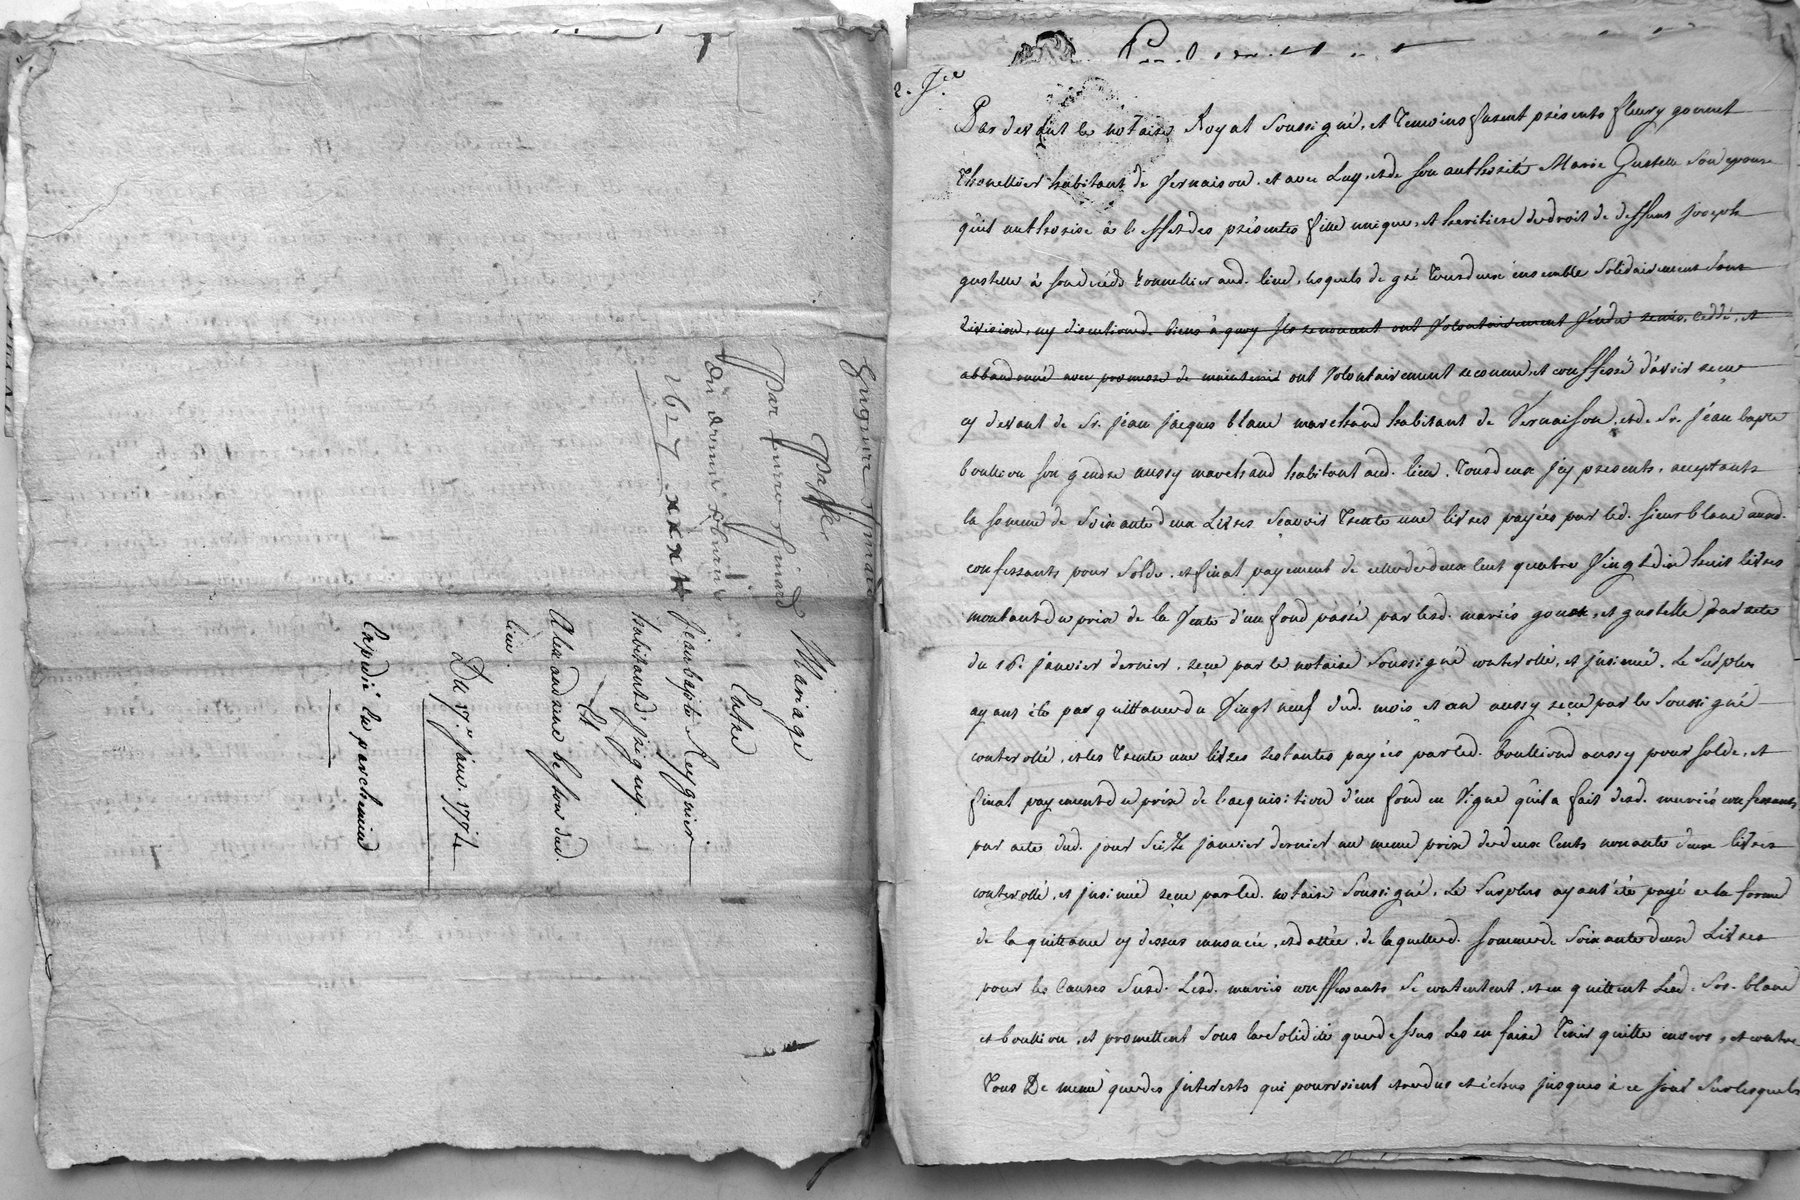 Mariage
Entre
Jean baptiste Reygnier
habitant d'jrigny.
Et
Alexandrine besson dud.
lieu.
Du 17e janv. 1792
Expedié en parchemin
Enquire
Passé
Par
1627
2. Jce
Par devant le notaire Royal soussigné, et temoins furent présents fleury gonnet
thonellier habitant de Vernaison, et avec luy, et de son authorité Marie Gustelle son epouse
qu'il authorise à l'effet des présentes fille unique, et heritiere de droit de deffunt joseph
gustelle à son décéds tonnellier aud. lieu, lesquels de gré tous deux ensemble solidairement sans
division, ny discution de biens à quoy ils renoncent ont volontairement vendu remis, ceddé, et
abbandonné avec promesse de maintenir ont volontairement reconnu, et conffessé d'avoir recu
cy devant de Sr. jean jacques blanc marchand habitant de Vernaison, et de Sr. jean bapte
boullion son gendre aussy marchand habitant aud. lieu, tous deux jcy presents, acceptants
la somme de soixante deux Livres sçavoir trente une livres payées par led. sieur blanc auxd.
confessants pour solde, et final payement de celle de deux cent quatre vingt dix huit livres
montant du prix de la vente d'un fond passé par lesd. mariés gonnet, et gustelle par acte
du 16e. janvier dernier, reçu par le notaire soussigné controllé, et jnsinué, le surplus
ayant été par quittance du vingt neuf dud. mois et an aussy reçue par le soussigné
controllé, et les trente une livres restantes payées par led. boulliond aussy pour solde, et
final payement du prix de l'acquisition d'un fond en vigne qu'il a fait desd. mariés confessants
par acte dud. jour seize janvier dernier au meme prix de deux cents nonante deux livres
controllé, et jnsinué reçu par led. notaire soussigné, le surplus ayant été payé en la forme
de la quittance cy dessus enoncée, et dattée, de laquelle d. somme de soixante deux Livres
pour les causes susd. Lesd. mariés conffessants se contentent, et en quittent lesd. Srs. blanc
et boullion, et promettent sous la solidité que dessus les en faire tenir quitte envers, et contre
tous De meme que des jnterests qui pourroient etre dus et échus jusques à ce jour surlesquels